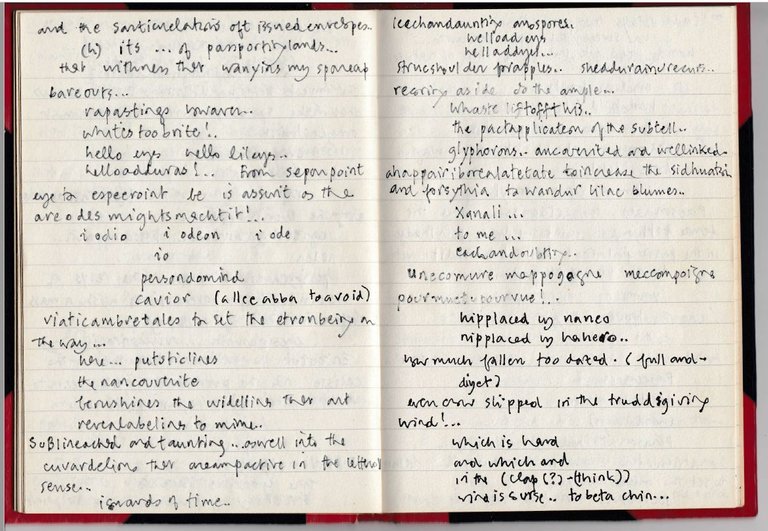 and the sarticnelations oft issued envelopes..
(h) its ... of passportitylands...
ther withness ther wanyins my spareap
bareouts...
rapastings howaver..
whitis too brite!..
hello eyes hello lileys..
helloadduras!.. From seponpoint
eye to especroint be is assunt as the
are odes mights machtit!..
i odio i odeon i ode
io
persondomind
cavior (allee abba to avoid)
viaticambretales to set the etronbeing on
the way...
here... putsticlines
the nancouvenite
berushines the widelling ther art
revealabelins to mime..
Sublineached and taunting...aswell into the
cuvardelins ther areampactive in the
sense..
isuards of time..
icechandaunting anospores.
helload eys
helladdyes...
strueshoulder forapples.. sheddurainurecurs..
resring aside do the ample...
whaste liftofft his..
the pactapplication of the subtell..
glyphorons.. ancavenited and wellinked
ahappairiborealatetate to increase the sidhuatsin
and forsythia to wandur lilac blumes..
Xanali...
to me...
eachandoubting..
unecomure mappogagne meccompoigne
pour-muet-pourvue!..
hipplaced in naneo
nipplaced in hahero..
how much fallen too dazed. (full and-
diget)
even snow slipped in the truddsgiving
wind!...
which is hard
and which and
in the (clap(?)-(think))
wind is surse.. to beta chin...